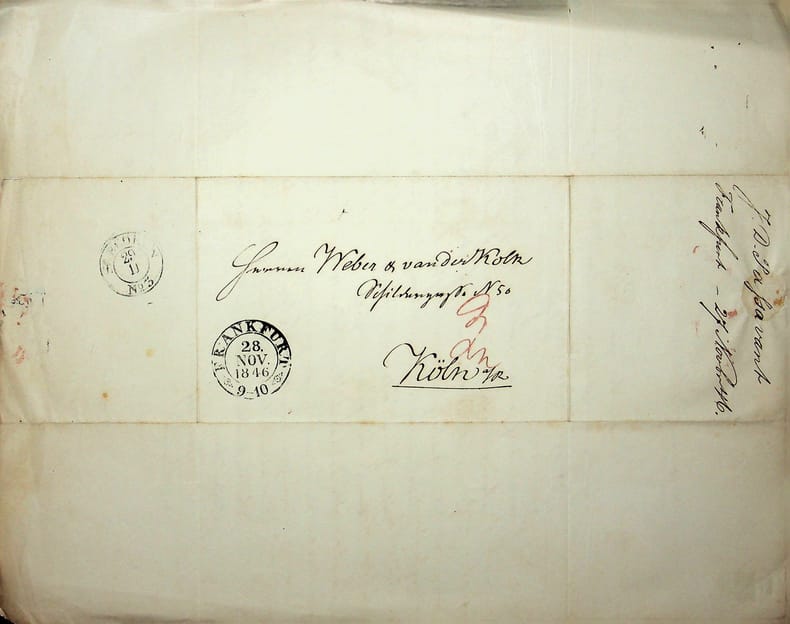 Herren Weber & van der Kolk
Schildergasse N 50
Köln a/R
FRANKFURT
28.
NOV.
1846
9-10
29
11
No 3
J. D. Passavant
Frankfurt – 27. Novbr 46.